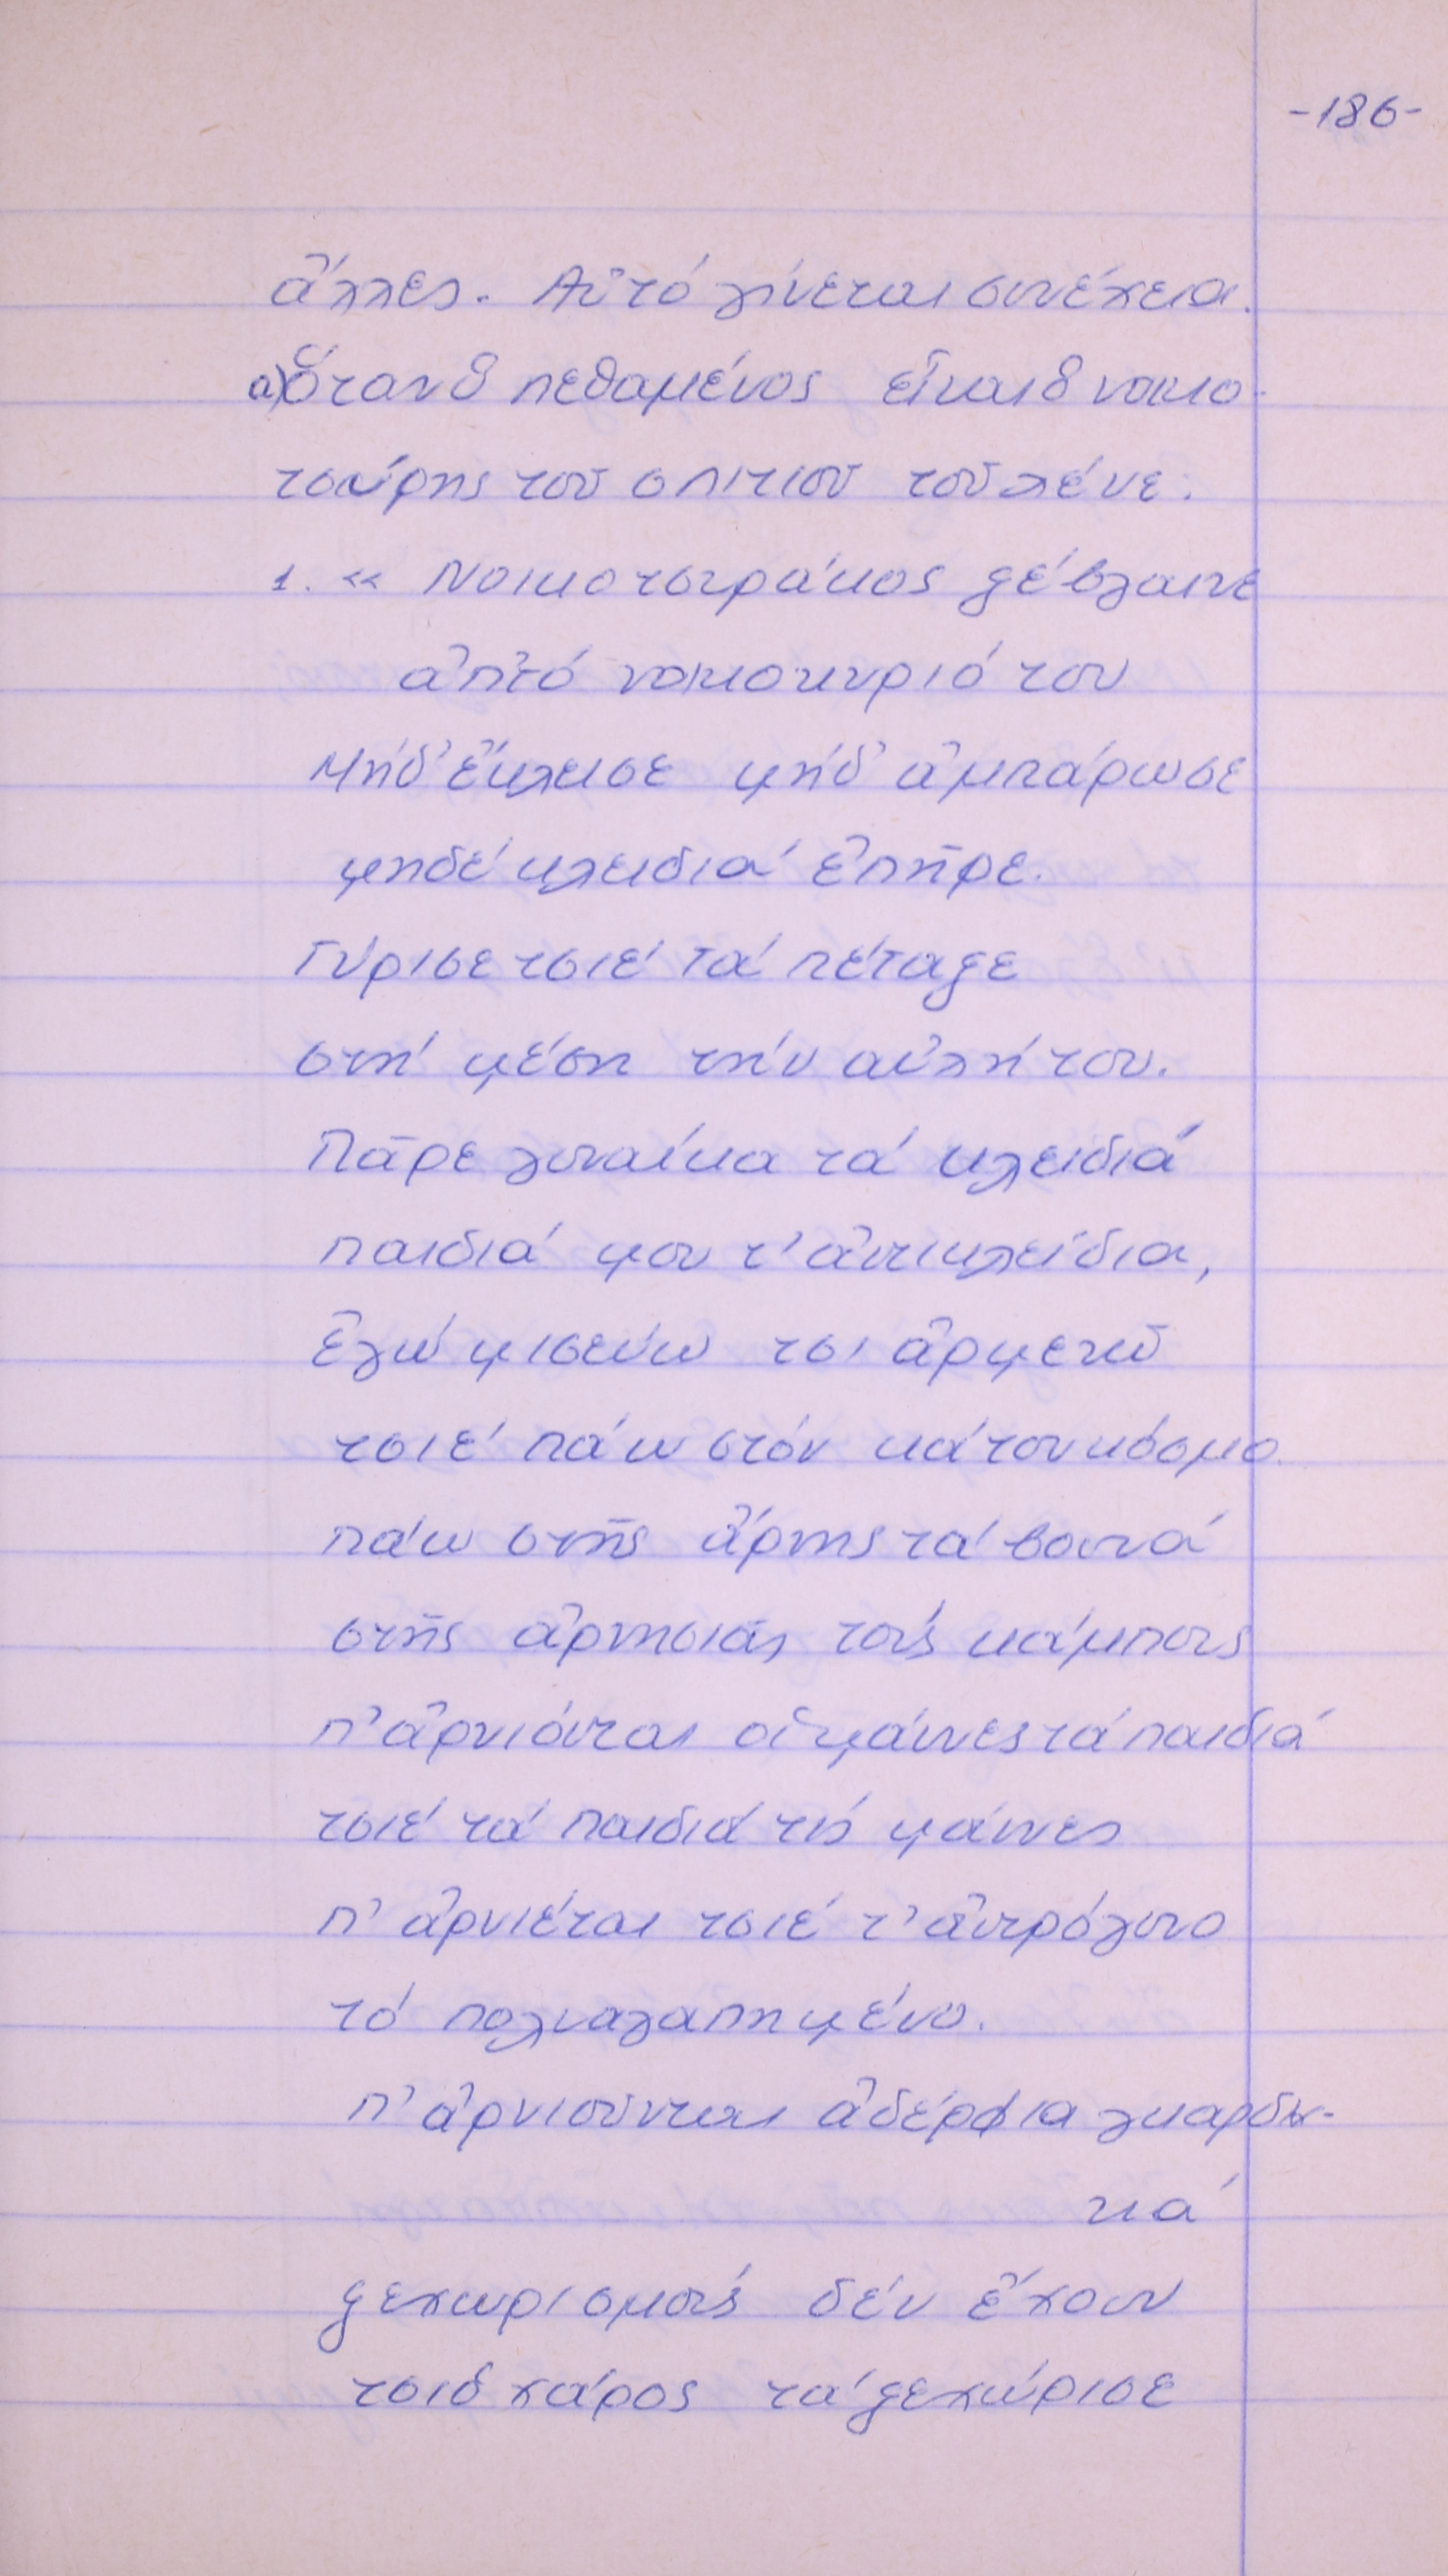 -186-
ἄλλες. Αὐτό γίνεται συνέχεια.
α) Ὅταν ὁ πεθαμένος εἶναι ὁ νοικο-
τσύρης τοῦ σπιτιοῦ τοῦ λένε:
1. « Νοικοτσυράκος ξέβγαινε
ἀπ̓τό νοικοκυριό του
Μήδ' ἔκλεισε μήδ' ἀμπάρωσε
μηδέ κλειδιά ἐπῆρε.
Γύρισε τσιέ τά πέταξε
στή μέση τήν αὐλή του.
Πᾶρε γυναίκα τά κλειδιά
παιδιά μου τ' ἀντικλείδια,
Ἐγώ μισεύω τσι ἀρμενῶ
τσιέ πάω στόν κάτου κόσμο.
πάω στῆς ἄρνης τά βουνά
στῆς ἀρνησιᾶς τούς κάμπους
π' ἀρνιόνται οἱ μάννες τά παιδιά
τσιέ τά παιδιά τίς μάννες
π' ἀρνιέται τσιέ τ' ἀντρόγυνο
τό πολυαγαπημένο.
π' ἀρνιοῦνται ἀδέρφια γκαρδια-
κά
ξεχωρισμούς δέν ἔχουν
τσι ὁ χάρος τά ξεχώρισε